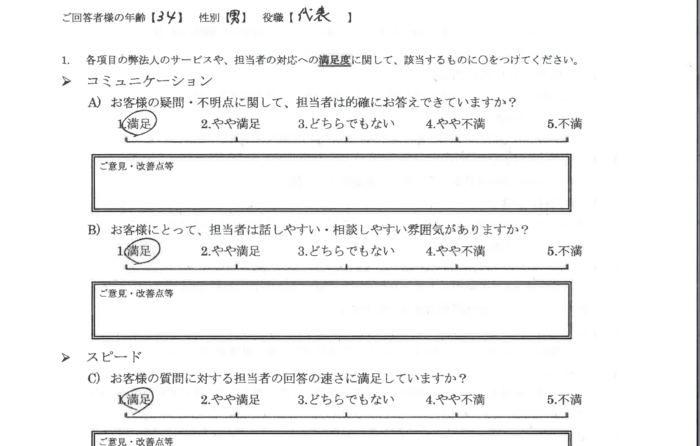 ご回答者様の年齢【34】 性別【男】 役職【 代表 】
1. 各項目の弊法人のサービスや、担当者の対応への満足度に関して、該当するものに○をつけてください。
➢ コミュニケーション
A) お客様の疑問・不明点に関して、担当者は的確にお答えできていますか？
1.満足 2.やや満足 3.どちらでもない 4.やや不満 5.不満
ご意見・改善点等
B) お客様にとって、担当者は話しやすい・相談しやすい雰囲気がありますか？
1.満足 2.やや満足 3.どちらでもない 4.やや不満 5.不満
ご意見・改善点等
➢ スピード
C) お客様の質問に対する担当者の回答の速さに満足していますか？
1.満足 2.やや満足 3.どちらでもない 4.やや不満 5.不満
ご意見・改善点等